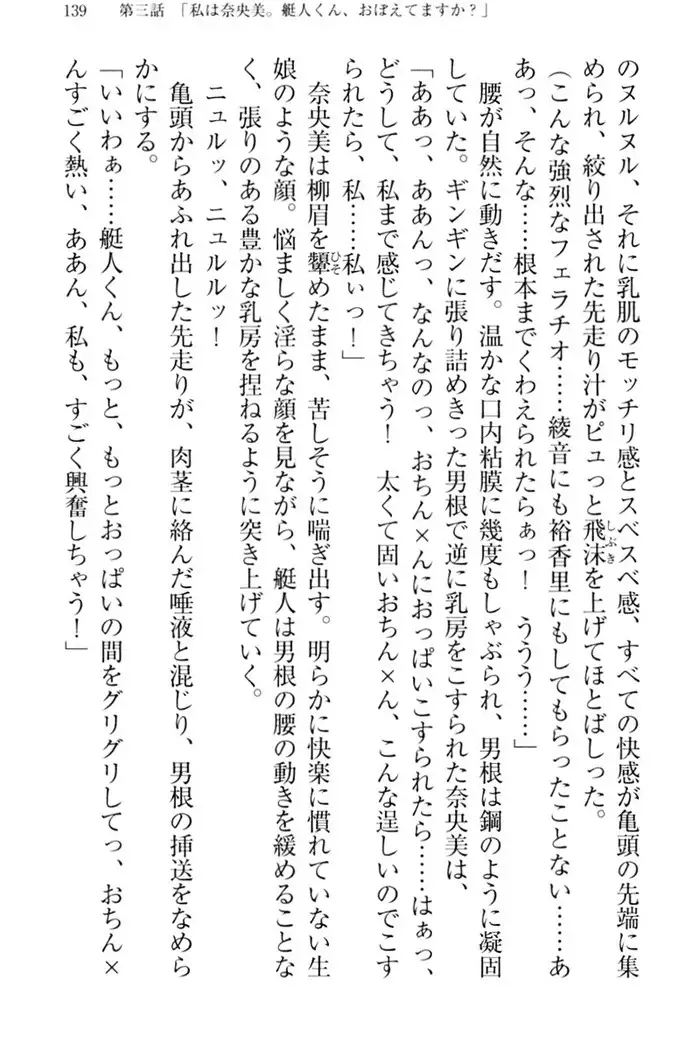 139　第三話　「私は奈央美。艇人くん、おぼえてますか？」
のヌルヌル、それに乳肌のモッチリ感とスベスベ感、すべての快感が亀頭の先端に集
められ、絞り出された先走り汁がピュっと飛沫を上げてほとばしった。
しぶき
（こんな強烈なフェラチオ……綾音にも裕香里にもしてもらったことない……あ
あっ、そんな……根本までくわえられたらぁっ！　ううう……」
　腰が自然に動きだす。温かな口内粘膜に幾度もしゃぶられ、男根は鋼のように凝固
していた。ギンギンに張り詰めきった男根で逆に乳房をこすられた奈央美は、
「ああっ、ああんっ、なんなのっ、おちん×んにおっぱいこすられたら……はぁっ、
どうして、私まで感じてきちゃう！　太くて固いおちん×ん、こんな逞しいのでこす
られたら、私……私ぃっ！」
　奈央美は柳眉を顰めたまま、苦しそうに喘ぎ出す。明らかに快楽に慣れていない生
ひそ
娘のような顔。悩ましく淫らな顔を見ながら、艇人は男根の腰の動きを緩めることな
く、張りのある豊かな乳房を捏ねるように突き上げていく。
　ニュルッ、ニュルルッ！
　亀頭からあふれ出した先走りが、肉茎に絡んだ唾液と混じり、男根の挿送をなめら
かにする。
「いいわぁ……艇人くん、もっと、もっとおっぱいの間をグリグリしてっ、おちん×
んすごく熱い、ああん、私も、すごく興奮しちゃう！」